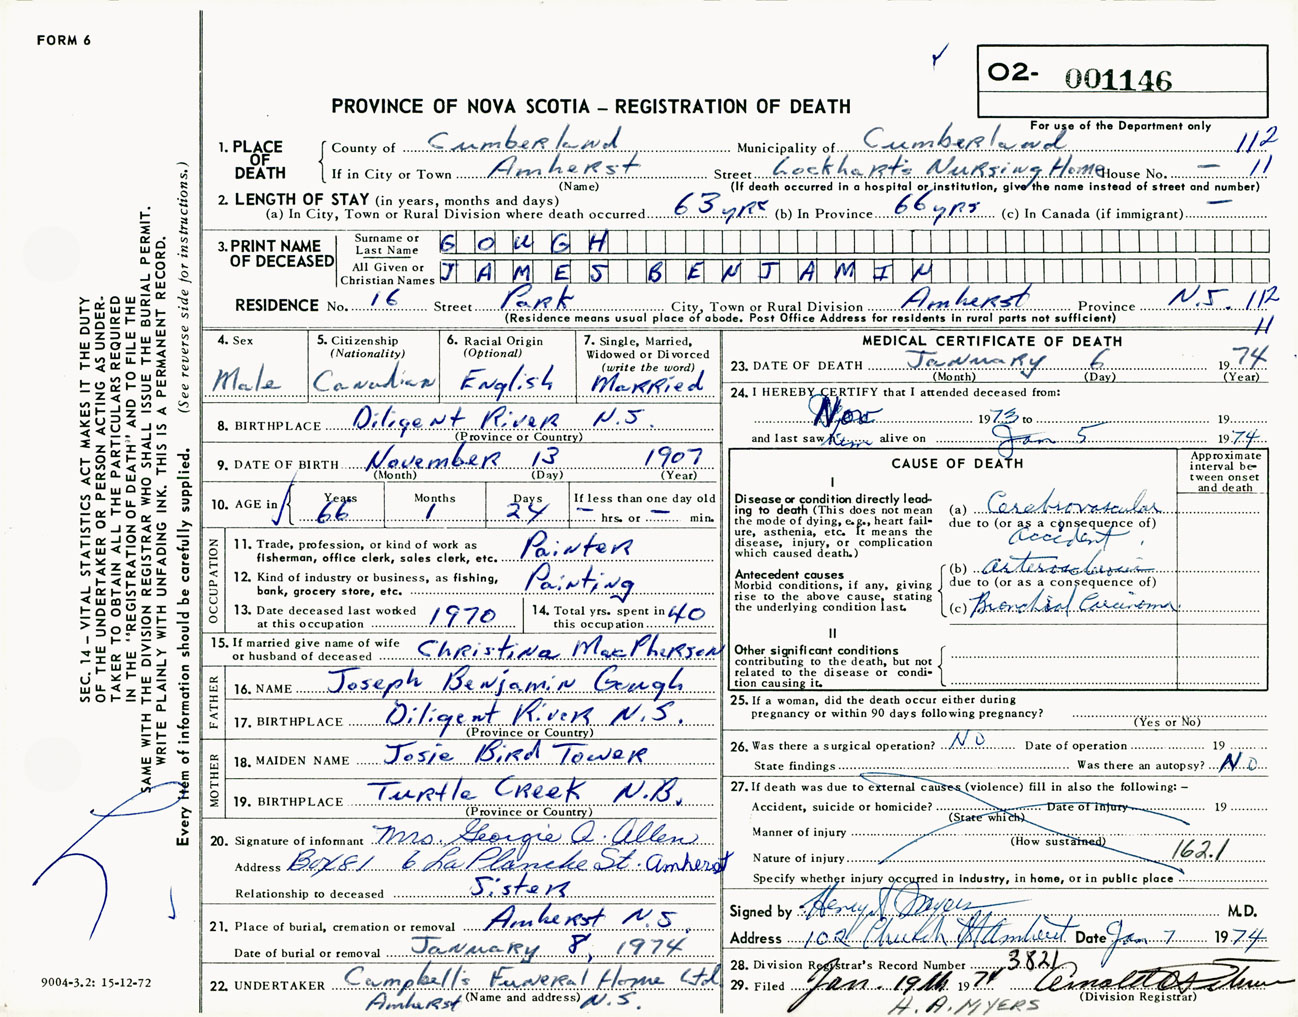 FORM 6
O2- 001146
PROVINCE OF NOVA SCOTIA – REGISTRATION OF DEATH
For use of the Department only
1. PLACE OF DEATH
County of Cumberland Municipality of Cumberland 112
If in City or Town Amherst Street Lockhart's Nursing Home House No. — 11
(Name) (If death occurred in a hospital or institution, give the name instead of street and number)
2. LENGTH OF STAY (in years, months and days)
(a) In City, Town or Rural Division where death occurred 63 yrs (b) In Province 66 yrs (c) In Canada (if immigrant) —
3. PRINT NAME OF DECEASED
Surname or Last Name GOUGH
All Given or Christian Names JAMES BENJAMIN
RESIDENCE No. 16 Street Park City, Town or Rural Division Amherst Province N.S. 112
(Residence means usual place of abode. Post Office Address for residents in rural parts not sufficient) 11
4. Sex
Male
5. Citizenship
(Nationality)
Canadian
6. Racial Origin
(Optional)
English
7. Single, Married,
Widowed or Divorced
(write the word)
Married
8. BIRTHPLACE Diligent River N.S.
(Province or Country)
9. DATE OF BIRTH November 13 1907
(Month) (Day) (Year)
10. AGE in
Years Months Days If less than one day old
66 1 24 — hrs. or — min.
OCCUPATION
11. Trade, profession, or kind of work as
fisherman, office clerk, sales clerk, etc. Painter
12. Kind of industry or business, as fishing,
bank, grocery store, etc. Painting
13. Date deceased last worked
at this occupation 1970
14. Total yrs. spent in
this occupation 40
15. If married give name of wife
or husband of deceased Christina MacPherson
FATHER
16. NAME Joseph Benjamin Gough
17. BIRTHPLACE Diligent River N.S.
(Province or Country)
MOTHER
18. MAIDEN NAME Josie Bird Tower
19. BIRTHPLACE Turtle Creek N.B.
(Province or Country)
20. Signature of informant Mrs. Georgie A. Allen
Address Box 81 6 La Planche St. Amherst
Relationship to deceased Sister
21. Place of burial, cremation or removal Amherst N.S.
Date of burial or removal January 8, 1974
22. UNDERTAKER Campbell's Funeral Home Ltd
(Name and address)
Amherst N.S.
MEDICAL CERTIFICATE OF DEATH
23. DATE OF DEATH January 6 1974
(Month) (Day) (Year)
24. I HEREBY CERTIFY that I attended deceased from:
Nov 1973 to 19
and last saw him alive on Jan 5 1974
CAUSE OF DEATH
Approximate
interval be-
tween onset
and death
I
Disease or condition directly lead-
ing to death (This does not mean
the mode of dying, e.g., heart fail-
ure, asthenia, etc. It means the
disease, injury, or complication
which caused death.)
(a) Cerebrovascular
due to (or as a consequence of)
Accident
Antecedent causes
Morbid conditions, if any, giving
rise to the above cause, stating
the underlying condition last.
(b) Arteriosclerosis
due to (or as a consequence of)
(c) Bronchial Carcinoma
II
Other significant conditions
contributing to the death, but not
related to the disease or condi-
tion causing it.
25. If a woman, did the death occur either during
pregnancy or within 90 days following pregnancy?
(Yes or No)
26. Was there a surgical operation? NO Date of operation 19
State findings Was there an autopsy? NO
27. If death was due to external causes (violence) fill in also the following: –
Accident, suicide or homicide? Date of injury 19
(State which)
Manner of injury
(How sustained)
Nature of injury 162.1
Specify whether injury occurred in industry, in home, or in public place
Signed by Henry A Myers M.D.
Address 102 Church St Amherst Date Jan 7 1974
28. Division Registrar's Record Number 3821
29. Filed Jan. 19th 1974
(Division Registrar)
H. A. MYERS
SEC. 14 – VITAL STATISTICS ACT MAKES IT THE DUTY
OF THE UNDERTAKER OR PERSON ACTING AS UNDER-
TAKER TO OBTAIN ALL THE PARTICULARS REQUIRED
IN THE "REGISTRATION OF DEATH" AND TO FILE THE
SAME WITH THE DIVISION REGISTRAR WHO SHALL ISSUE THE BURIAL PERMIT.
WRITE PLAINLY WITH UNFADING INK. THIS IS A PERMANENT RECORD.
Every item of information should be carefully supplied. (See reverse side for instructions.)
9004-3.2: 15-12-72